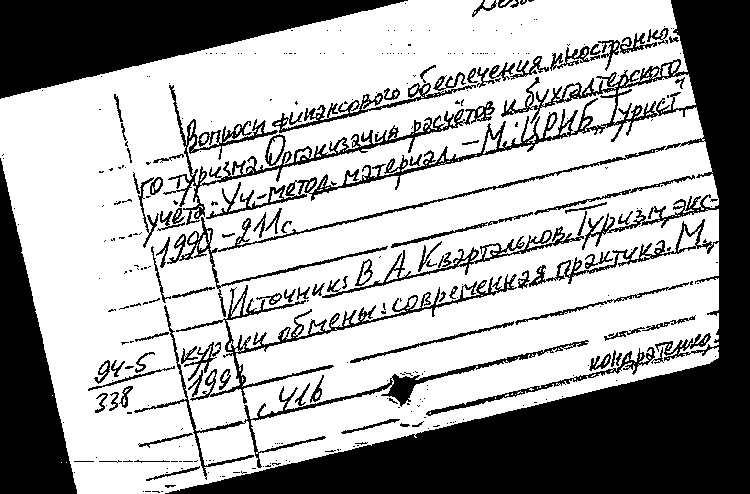 Вопросы финансового обеспечения иностранно-
го туризма. Организация расчётов и бухгалтерского
учёта: Уч.-метод. материал. – М.: ЦРИБ „Турист”,
1990. – 211 с.
Источник: В. А. Квартальнов. Туризм, экс-
курсии, обмены: современная практика. М.,
1993
с. 416
94-5
338
кондратенко,